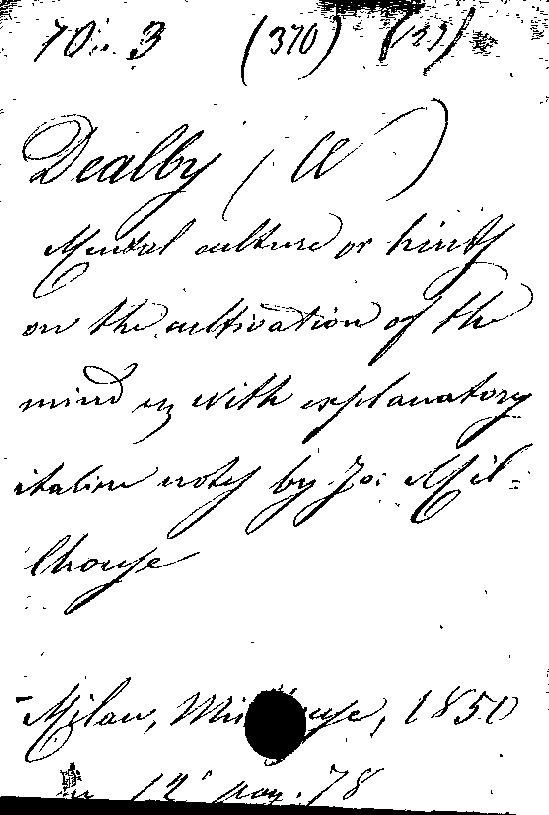 70 3 (370)
Dealby (W)
Mental culture or hints
on the cultivation of the
mind with explanatory
italian notes by Jo: Mil=
lhouse
Milan, 1850
in 12° pag. 78